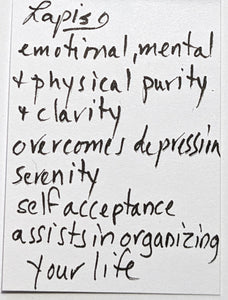 Lapis
emotional, mental
+ physical purity
+ clarity
overcomes depression
serenity
self acceptance
assists in organizing
your life